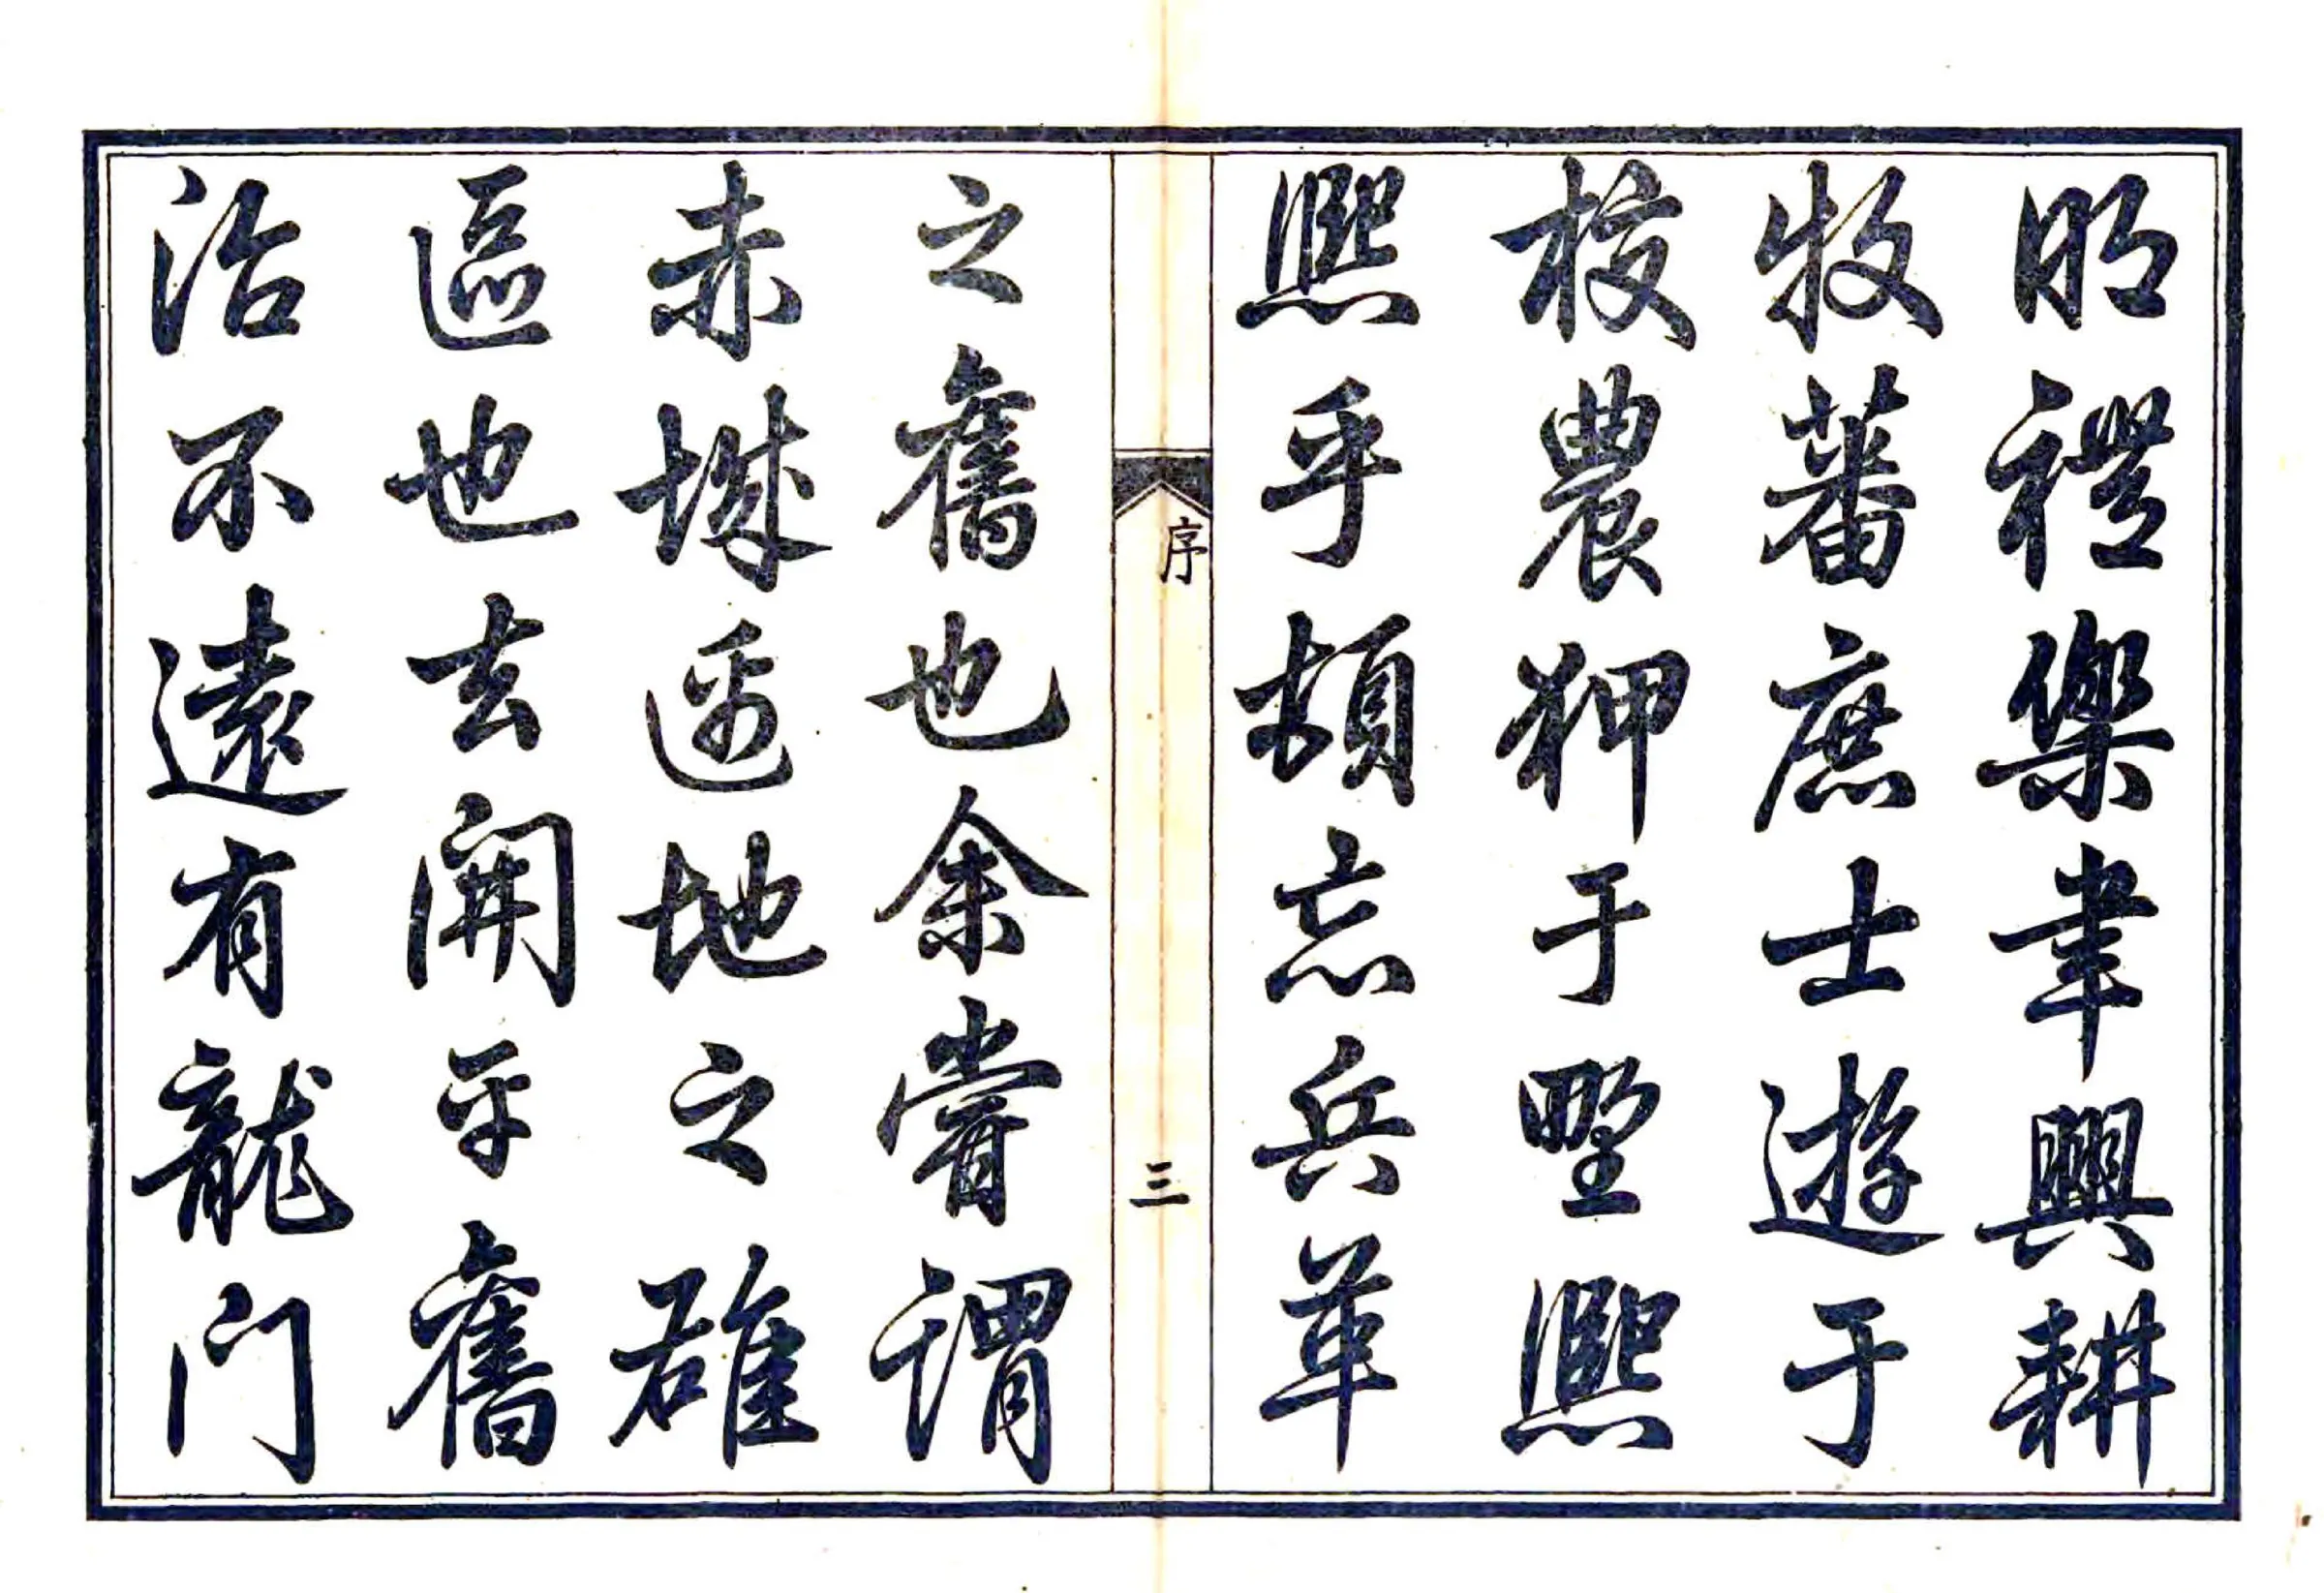 明禮樂聿興耕
牧蕃庶士遊于
校農狎于野熙
熙乎頓忘兵革
序
三
之舊也余嘗謂
赤城邊地之雄
區也去開平舊
治不遠有龍門